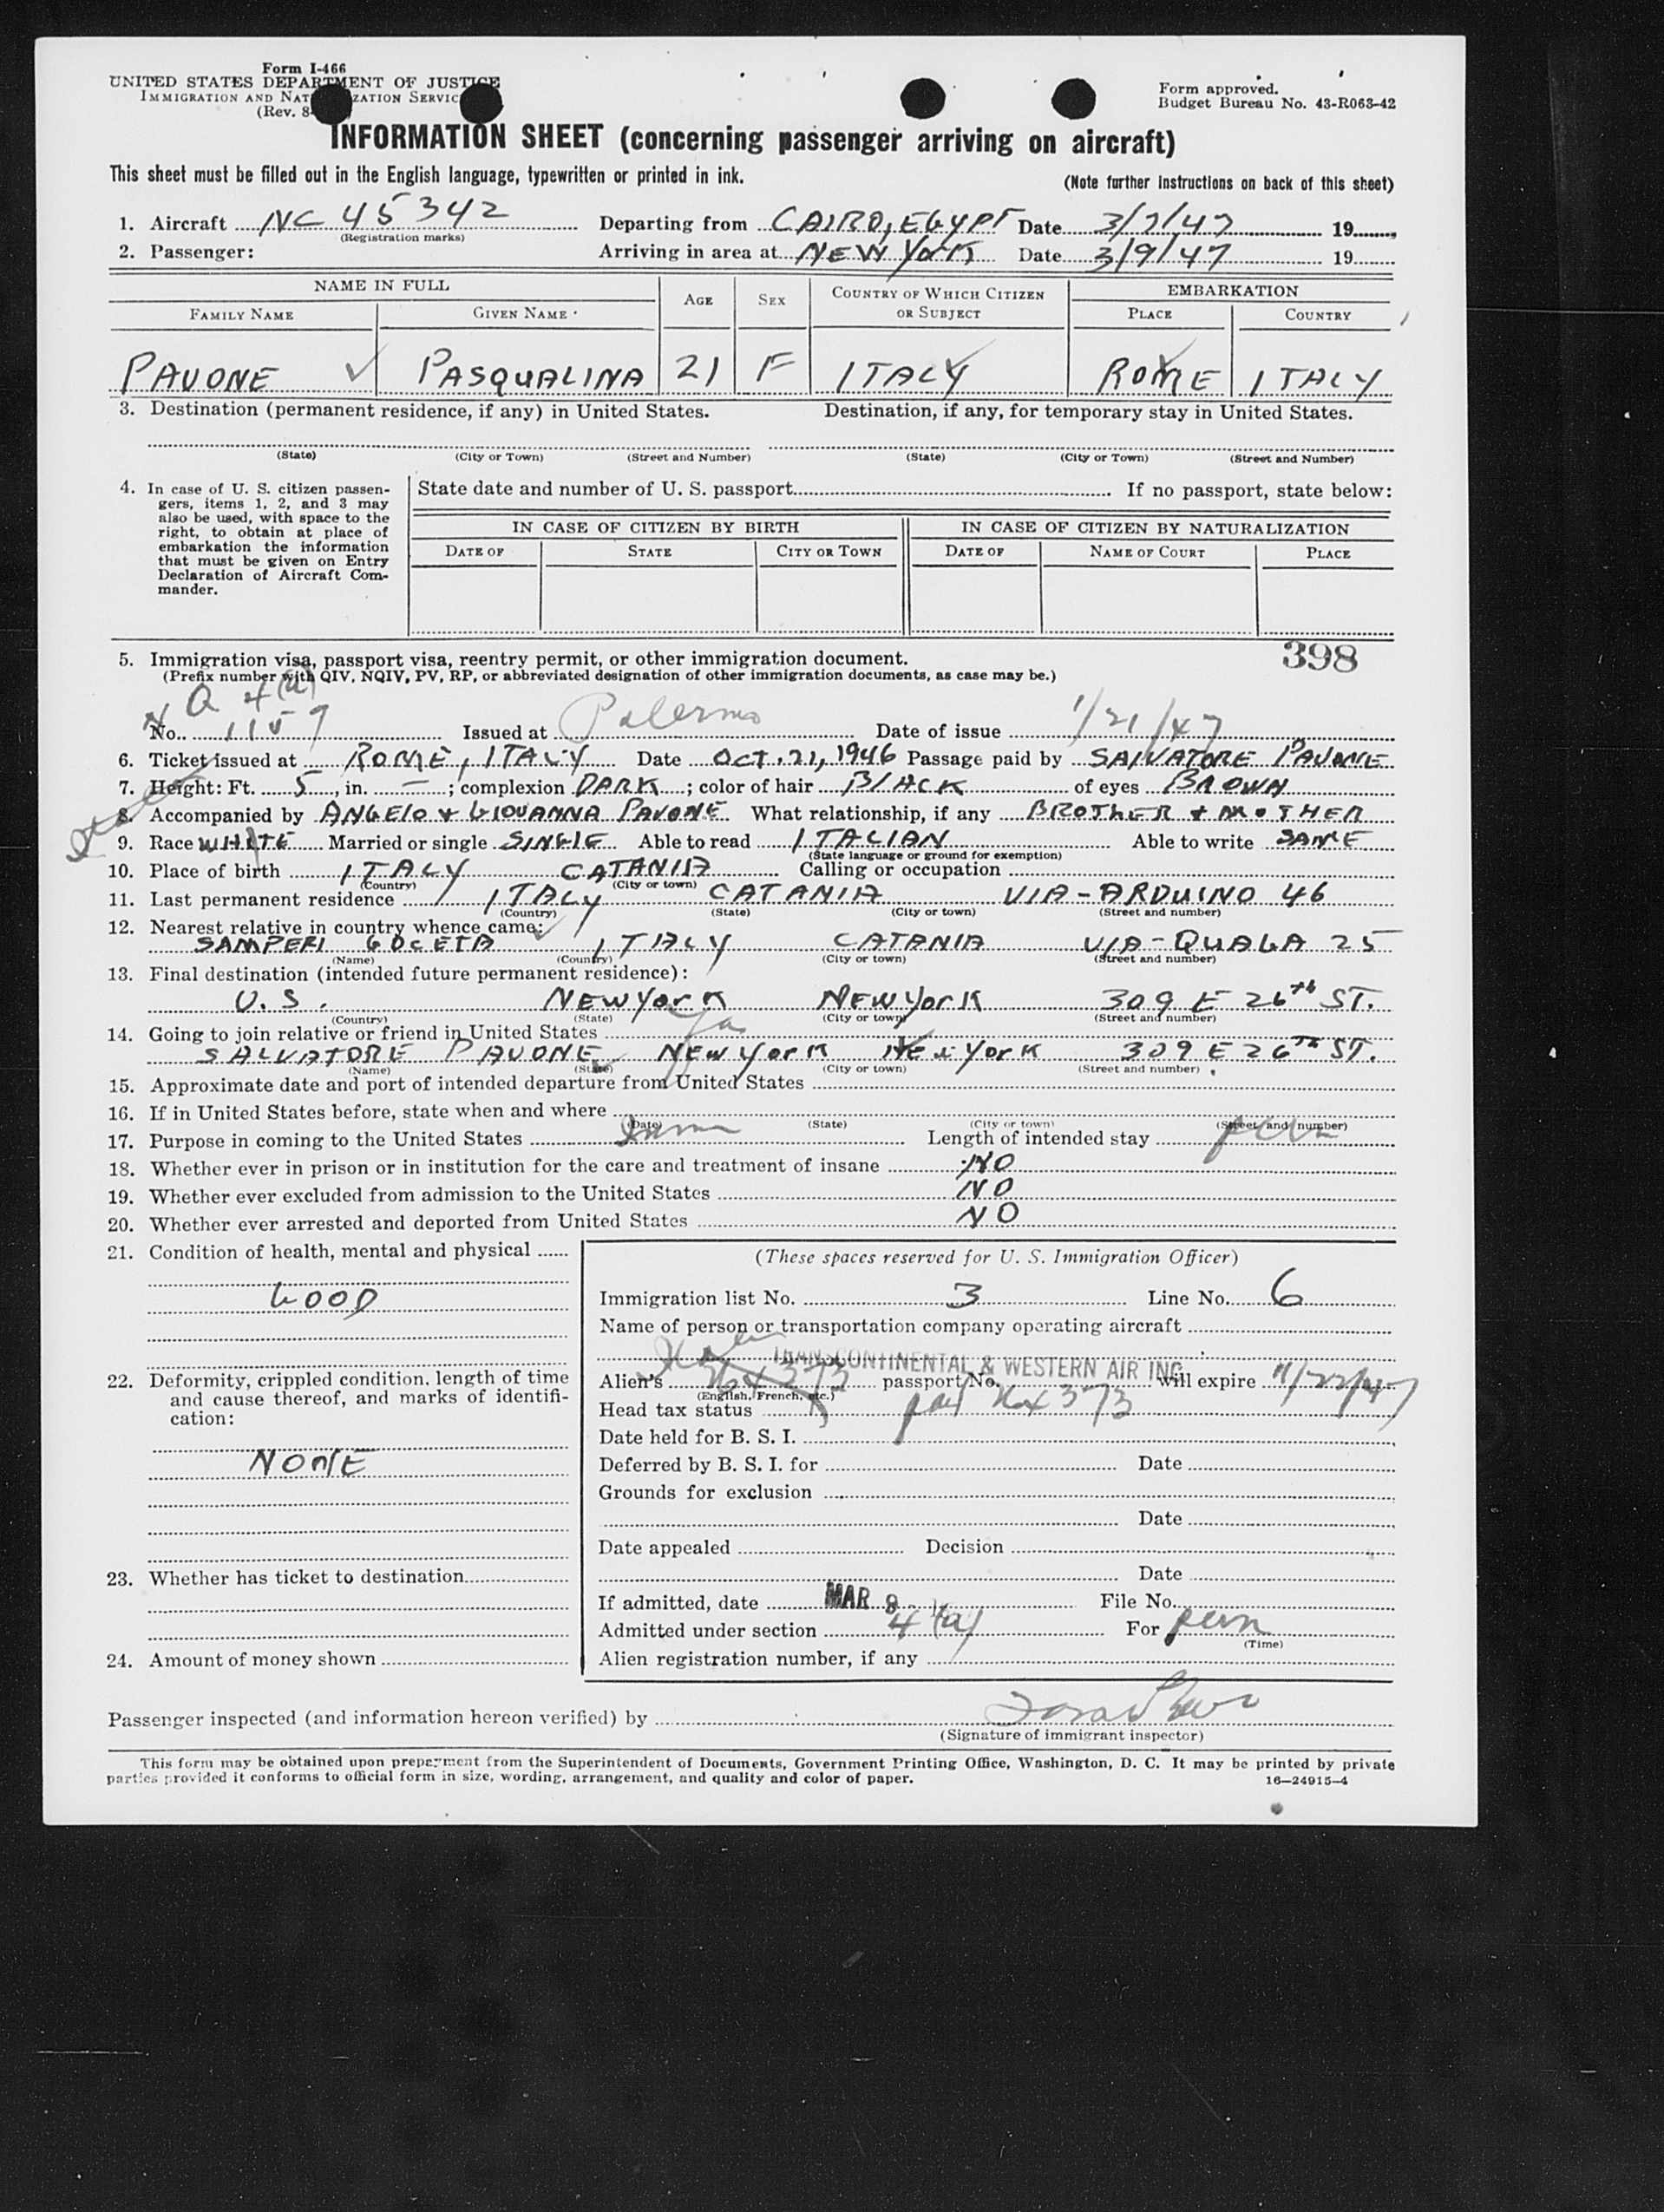 Form I-466
UNITED STATES DEPARTMENT OF JUSTICE
IMMIGRATION AND NAT ZATION SERVIC
(Rev. 8-
Form approved.
Budget Bureau No. 43-R063-42
INFORMATION SHEET (concerning passenger arriving on aircraft)
This sheet must be filled out in the English language, typewritten or printed in ink.
(Note further instructions on back of this sheet)
1. Aircraft NC 45342 Departing from CAIRO, EGYPT Date 3/7/47 19
(Registration marks)
2. Passenger: Arriving in area at NEW YORK Date 3/9/47 19
NAME IN FULL AGE SEX COUNTRY OF WHICH CITIZEN OR SUBJECT EMBARKATION
FAMILY NAME GIVEN NAME PLACE COUNTRY
PAVONE PASQUALINA 21 F ITALY ROME ITALY
3. Destination (permanent residence, if any) in United States. Destination, if any, for temporary stay in United States.
(State) (City or Town) (Street and Number) (State) (City or Town) (Street and Number)
4. In case of U. S. citizen passen-
gers, items 1, 2, and 3 may
also be used, with space to the
right, to obtain at place of
embarkation the information
that must be given on Entry
Declaration of Aircraft Com-
mander.
State date and number of U. S. passport If no passport, state below:
IN CASE OF CITIZEN BY BIRTH IN CASE OF CITIZEN BY NATURALIZATION
DATE OF STATE CITY OR TOWN DATE OF NAME OF COURT PLACE
398
5. Immigration visa, passport visa, reentry permit, or other immigration document.
(Prefix number with QIV, NQIV, PV, RP, or abbreviated designation of other immigration documents, as case may be.)
Q 4(a)
No. 1159 Issued at Palermo Date of issue 1/21/47
6. Ticket issued at ROME, ITALY Date OCT. 21, 1946 Passage paid by SALVATORE PAVONE
7. Height: Ft. 5, in. — ; complexion DARK ; color of hair BLACK of eyes BROWN
8. Accompanied by ANGELO & GIOVANNA PAVONE What relationship, if any BROTHER & MOTHER
9. Race WHITE Married or single SINGLE Able to read ITALIAN Able to write SAME
(State language or ground for exemption)
10. Place of birth ITALY CATANIA Calling or occupation
(Country) (City or town)
11. Last permanent residence ITALY CATANIA VIA-ARDUINO 46
(Country) (State) (City or town) (Street and number)
12. Nearest relative in country whence came:
SAMPERI GOCETA ITALY CATANIA VIA-QUALA 25
(Name) (Country) (City or town) (Street and number)
13. Final destination (intended future permanent residence):
U.S. NEW YORK NEW YORK 309 E 26th ST.
(Country) (State) (City or town) (Street and number)
14. Going to join relative or friend in United States fa
SALVATORE PAVONE NEW YORK NEW YORK 309 E 26TH ST.
(Name) (State) (City or town) (Street and number)
15. Approximate date and port of intended departure from United States
16. If in United States before, state when and where
(Date) (State) (City or town) (Street and number)
17. Purpose in coming to the United States Imm Length of intended stay perm
18. Whether ever in prison or in institution for the care and treatment of insane NO
19. Whether ever excluded from admission to the United States NO
20. Whether ever arrested and deported from United States NO
21. Condition of health, mental and physical
GOOD
22. Deformity, crippled condition, length of time
and cause thereof, and marks of identifi-
cation:
NONE
23. Whether has ticket to destination
24. Amount of money shown
(These spaces reserved for U. S. Immigration Officer)
Immigration list No. 3 Line No. 6
Name of person or transportation company operating aircraft
TRANSCONTINENTAL & WESTERN AIR INC
Alien's passport No. will expire 11/22/47
(English, French, etc.)
Head tax status
Date held for B. S. I.
Deferred by B. S. I. for Date
Grounds for exclusion
Date
Date appealed Decision
Date
If admitted, date MAR 8 File No.
Admitted under section 4 (a) For perm
(Time)
Alien registration number, if any
Passenger inspected (and information hereon verified) by
(Signature of immigrant inspector)
This form may be obtained upon prepayment from the Superintendent of Documents, Government Printing Office, Washington, D. C. It may be printed by private
parties provided it conforms to official form in size, wording, arrangement, and quality and color of paper.
16—24915-4